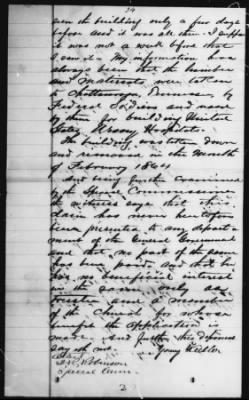 seen the building only a few days
before and it was all there. I suppose
it was not a week before that
I saw it. My information has
always been that the lumber
and materials were taken
to Chattanooga, Tennessee by
Federal Soldiers and used
by them for building United
States Army Hospitals.
The building was taken down
and removed in the month
of February 1864.
And being further examined
by the Special Commissioner
witness says that this
claim has never heretofore
been presented to any depart-
ment of the General Government
and that no part of the same
has been paid, and that he
has no beneficial interest
in the same only as
trustee and a member
of the Church for whose
benefit the application is
made. And further this deponent
say not.
Attest
Robinson
Special Comr.
2